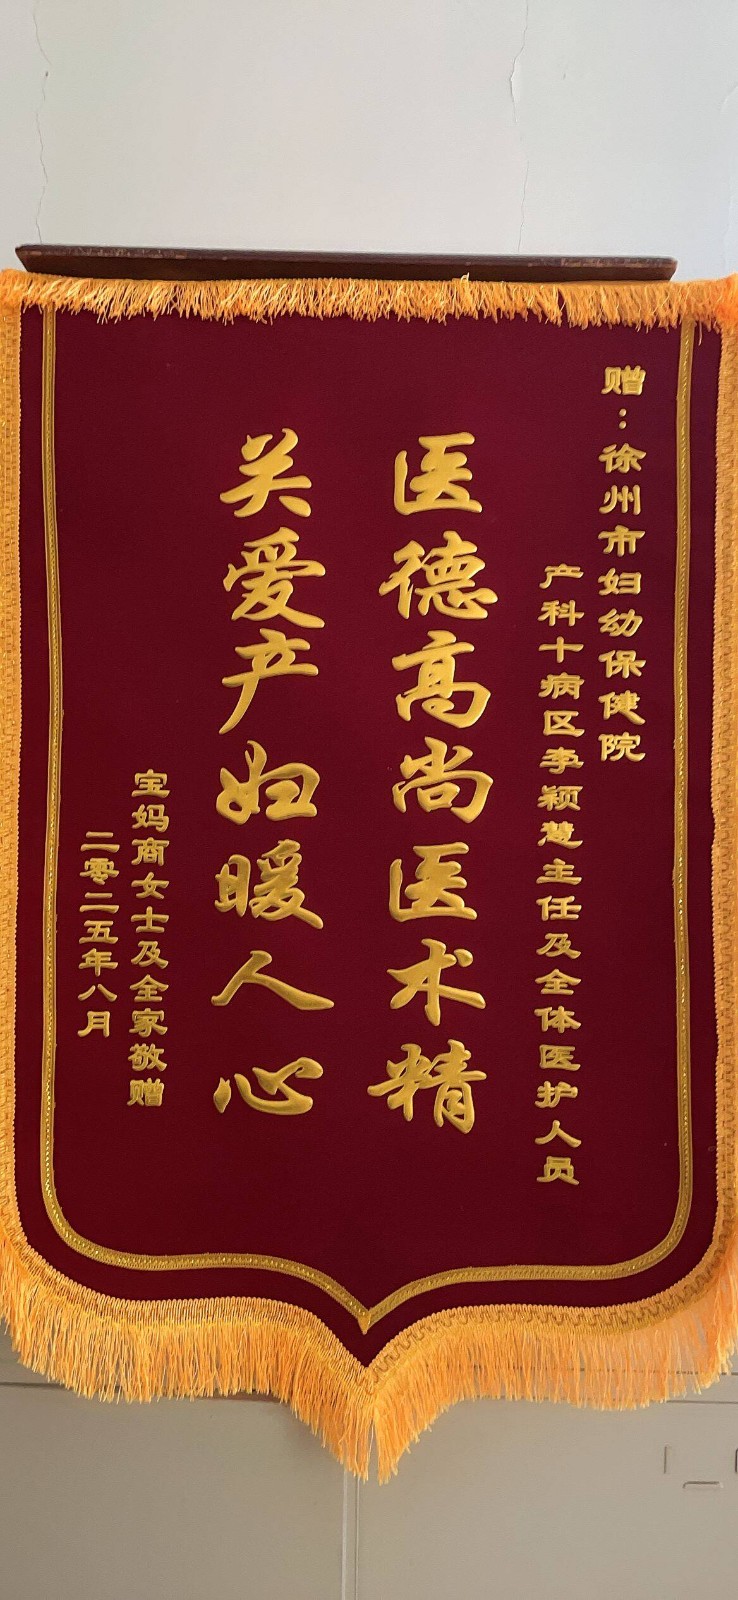 赠：徐州市妇幼保健院
产科十病区李颖慧主任及全体医护人员
医德高尚医术精
关爱产妇暖人心
宝妈商女士及全家敬赠
二零二五年八月